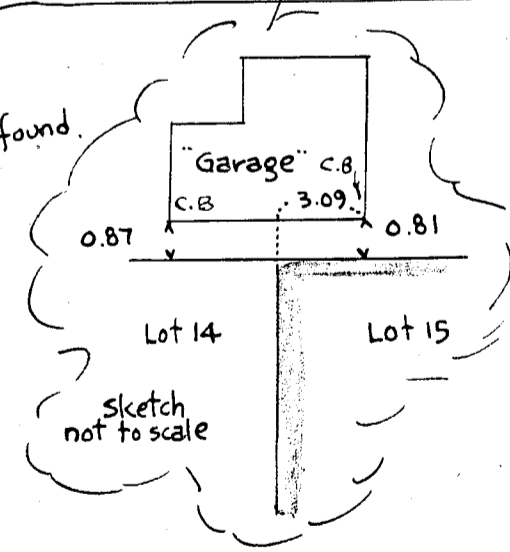 found.
"Garage" C.B.
C.B 3.09
0.87 0.81
Lot 14 Lot 15
sketch
not to scale